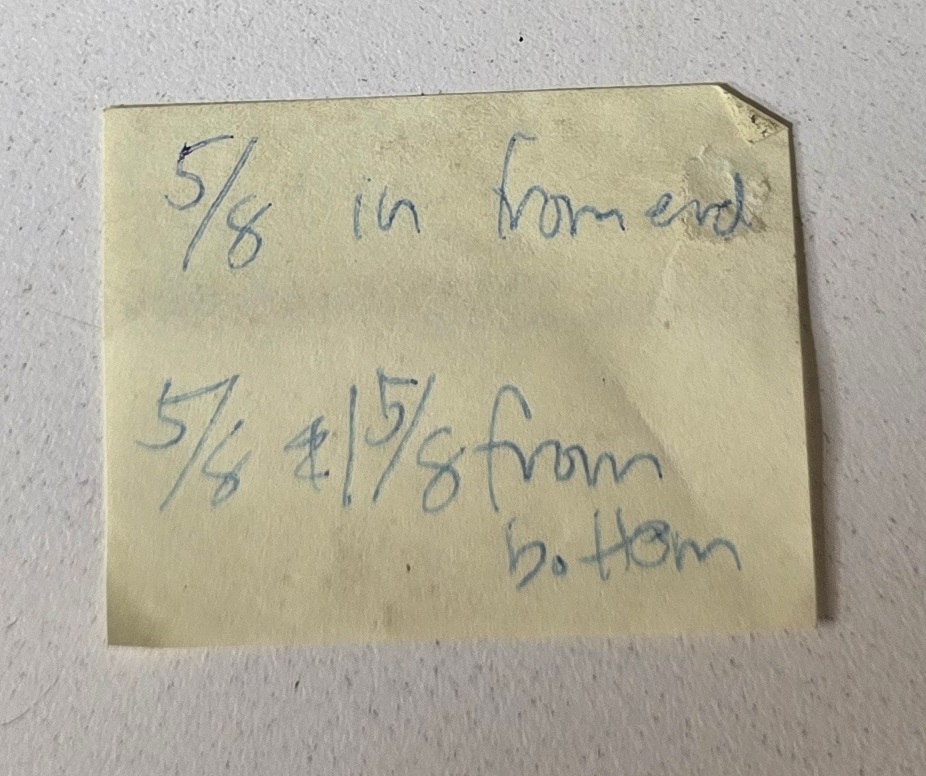 5/8 in from end
5/8 & 1 5/8 from
bottom